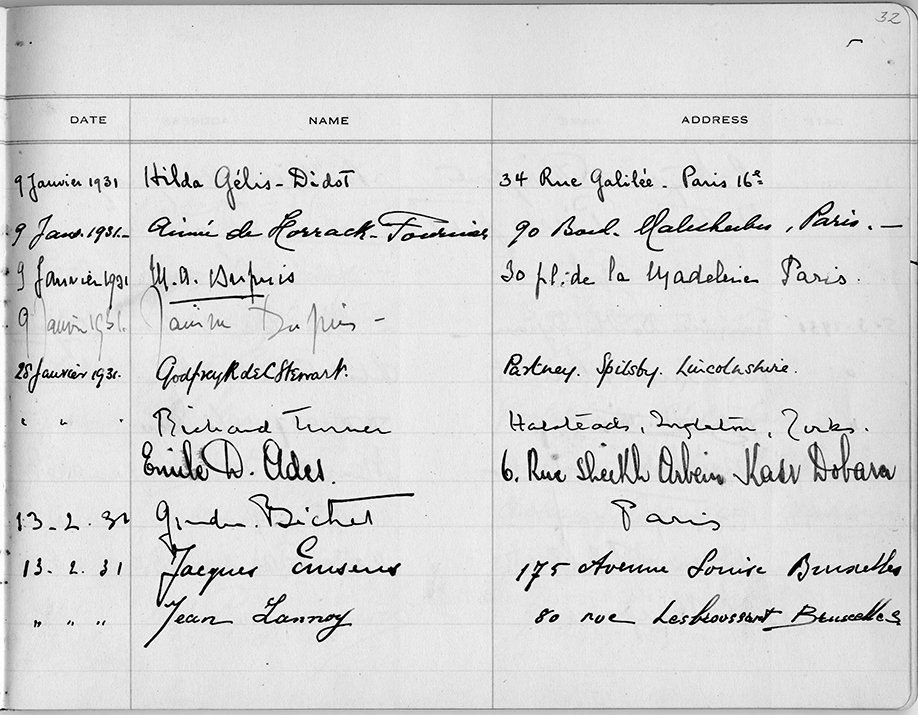 32
DATE NAME ADDRESS
9 Janvier 1931 Hilda Gélis-Didot 34 Rue Galilée - Paris 16e
9 Janv. 1931.- Aimée de Horrack-Fournier 90 Boul. Malesherbes, Paris. -
9 Janvier 1931 M.A. Dupuis 30 pl. de la Madeleine Paris.
9 Janvier 1931. Dupuis -
28 Janvier 1931. Godfrey R de C Stewart. Partney. Spilsby. Lincolnshire.
" " " Richard Turner Halsteads, Ingleton, Yorks.
Emile D. Ades. 6. Rue Sheikh Arbein Kasr Dobara
13_2.31 Bichet Paris
13.2.31 Jacques Emsens 175 Avenue Louise Bruxelles
" " " Jean Lannoy 80 rue Lesbroussart Bruxelles